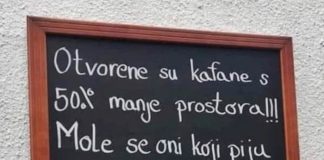 Otvorene su kafane s
50% manje prostora!!!
Mole se oni koji piju